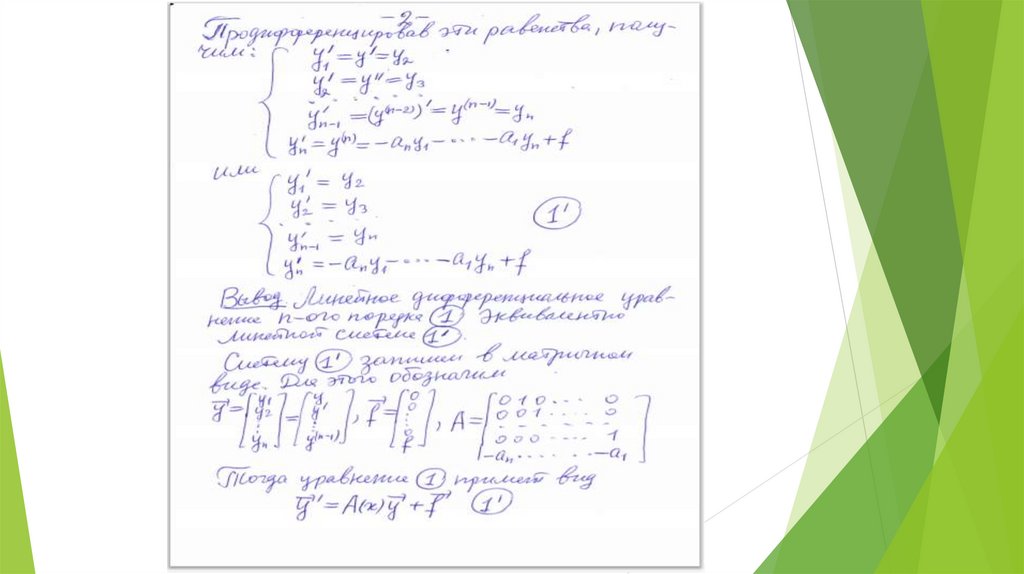 -2-
Продифференцировав эти равенства, полу-
чим:
y₁' = y' = y₂
y₂' = y'' = y₃
. . . . . . . .
y'ₙ₋₁ = (y⁽ⁿ⁻²⁾)' = y⁽ⁿ⁻¹⁾ = yₙ
yₙ' = y⁽ⁿ⁾ = -aₙy₁ - ... - a₁yₙ + f
или
y₁' = y₂
y₂' = y₃
. . . . . . . .
y'ₙ₋₁ = yₙ
yₙ' = -aₙy₁ - ... - a₁yₙ + f
1'
Вывод. Линейное дифференциальное урав-
нение n-ого порядка 1 эквивалентно
линейной системе 1'.
Систему 1' запишем в матричном
виде. Для этого обозначим
y⃗ = [y₁ y₂ ... yₙ] = [y, y' ... y⁽ⁿ⁻¹⁾], f⃗ = [0 0 ... 0 f], A = [0 1 0 .... 0
0 0 1 .... 0
. . . . . . . .
0 0 0 .... 1
-aₙ ...... -a₁]
Тогда уравнение 1 примет вид
y⃗' = A(x)y⃗ + f⃗ 1'